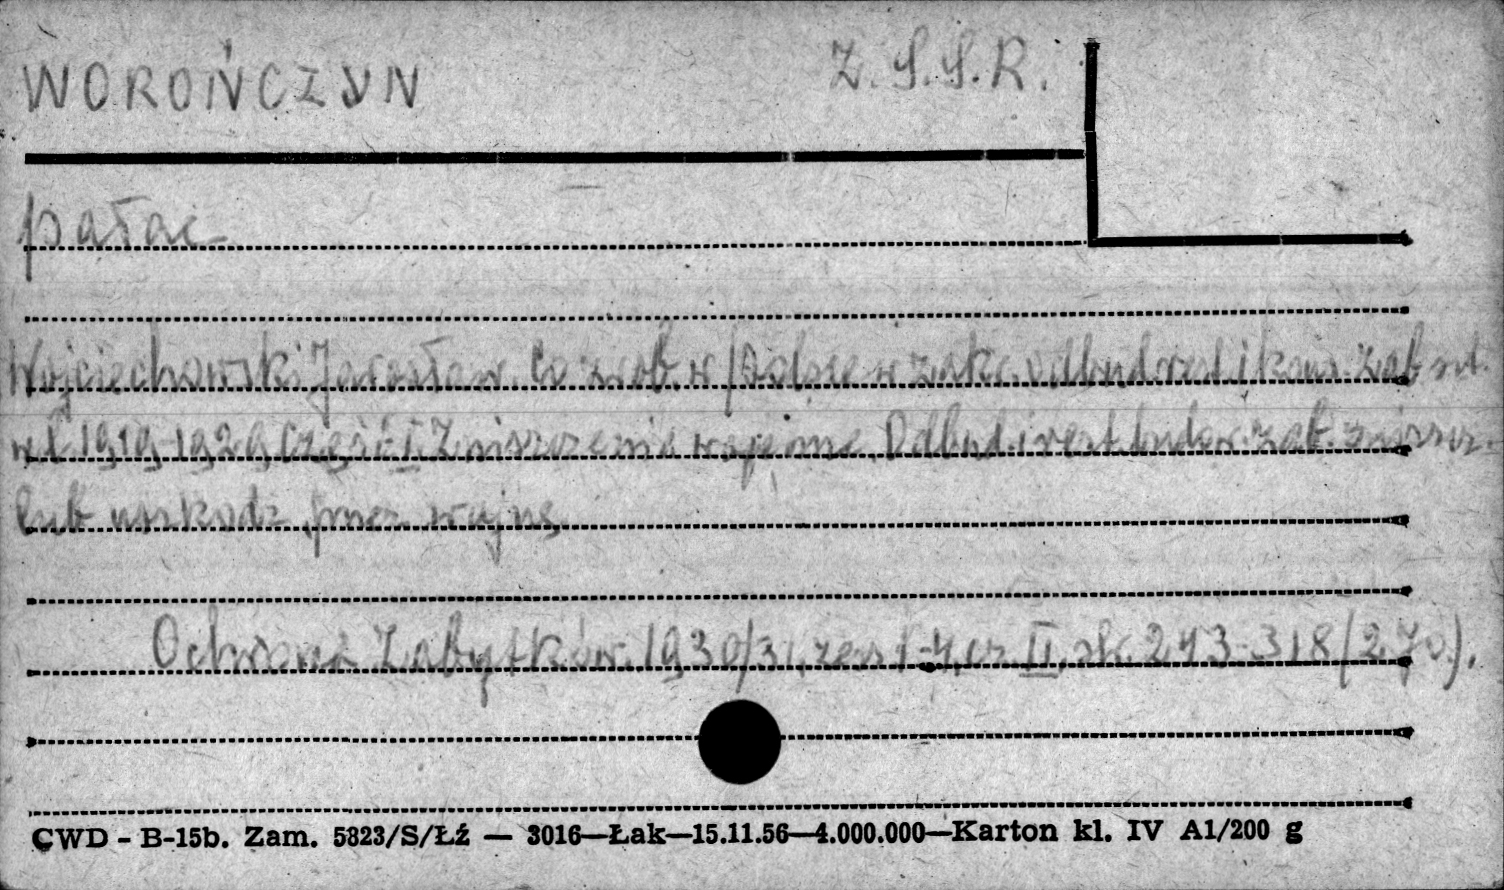 WOROŃCZYN Z.S.S.R.
pałac
Wojciechowski Jarosław. Co zrob. w Polsce w zakr. odbud. rest. i kons. zab. szt.
w l. 1919-1929 Część I. Zniszczenia wojenne. Odbud. i rest. budow. zab. zniszcz.
lub uszkodz. przez wojnę
Ochrona Zabytków. 1930/31, zesz 1-4, cz II, str. 243-318 (270).
CWD - B-15b. Zam. 5823/S/Łź — 3016—Łak—15.11.56—4.000.000—Karton kl. IV A1/200 g